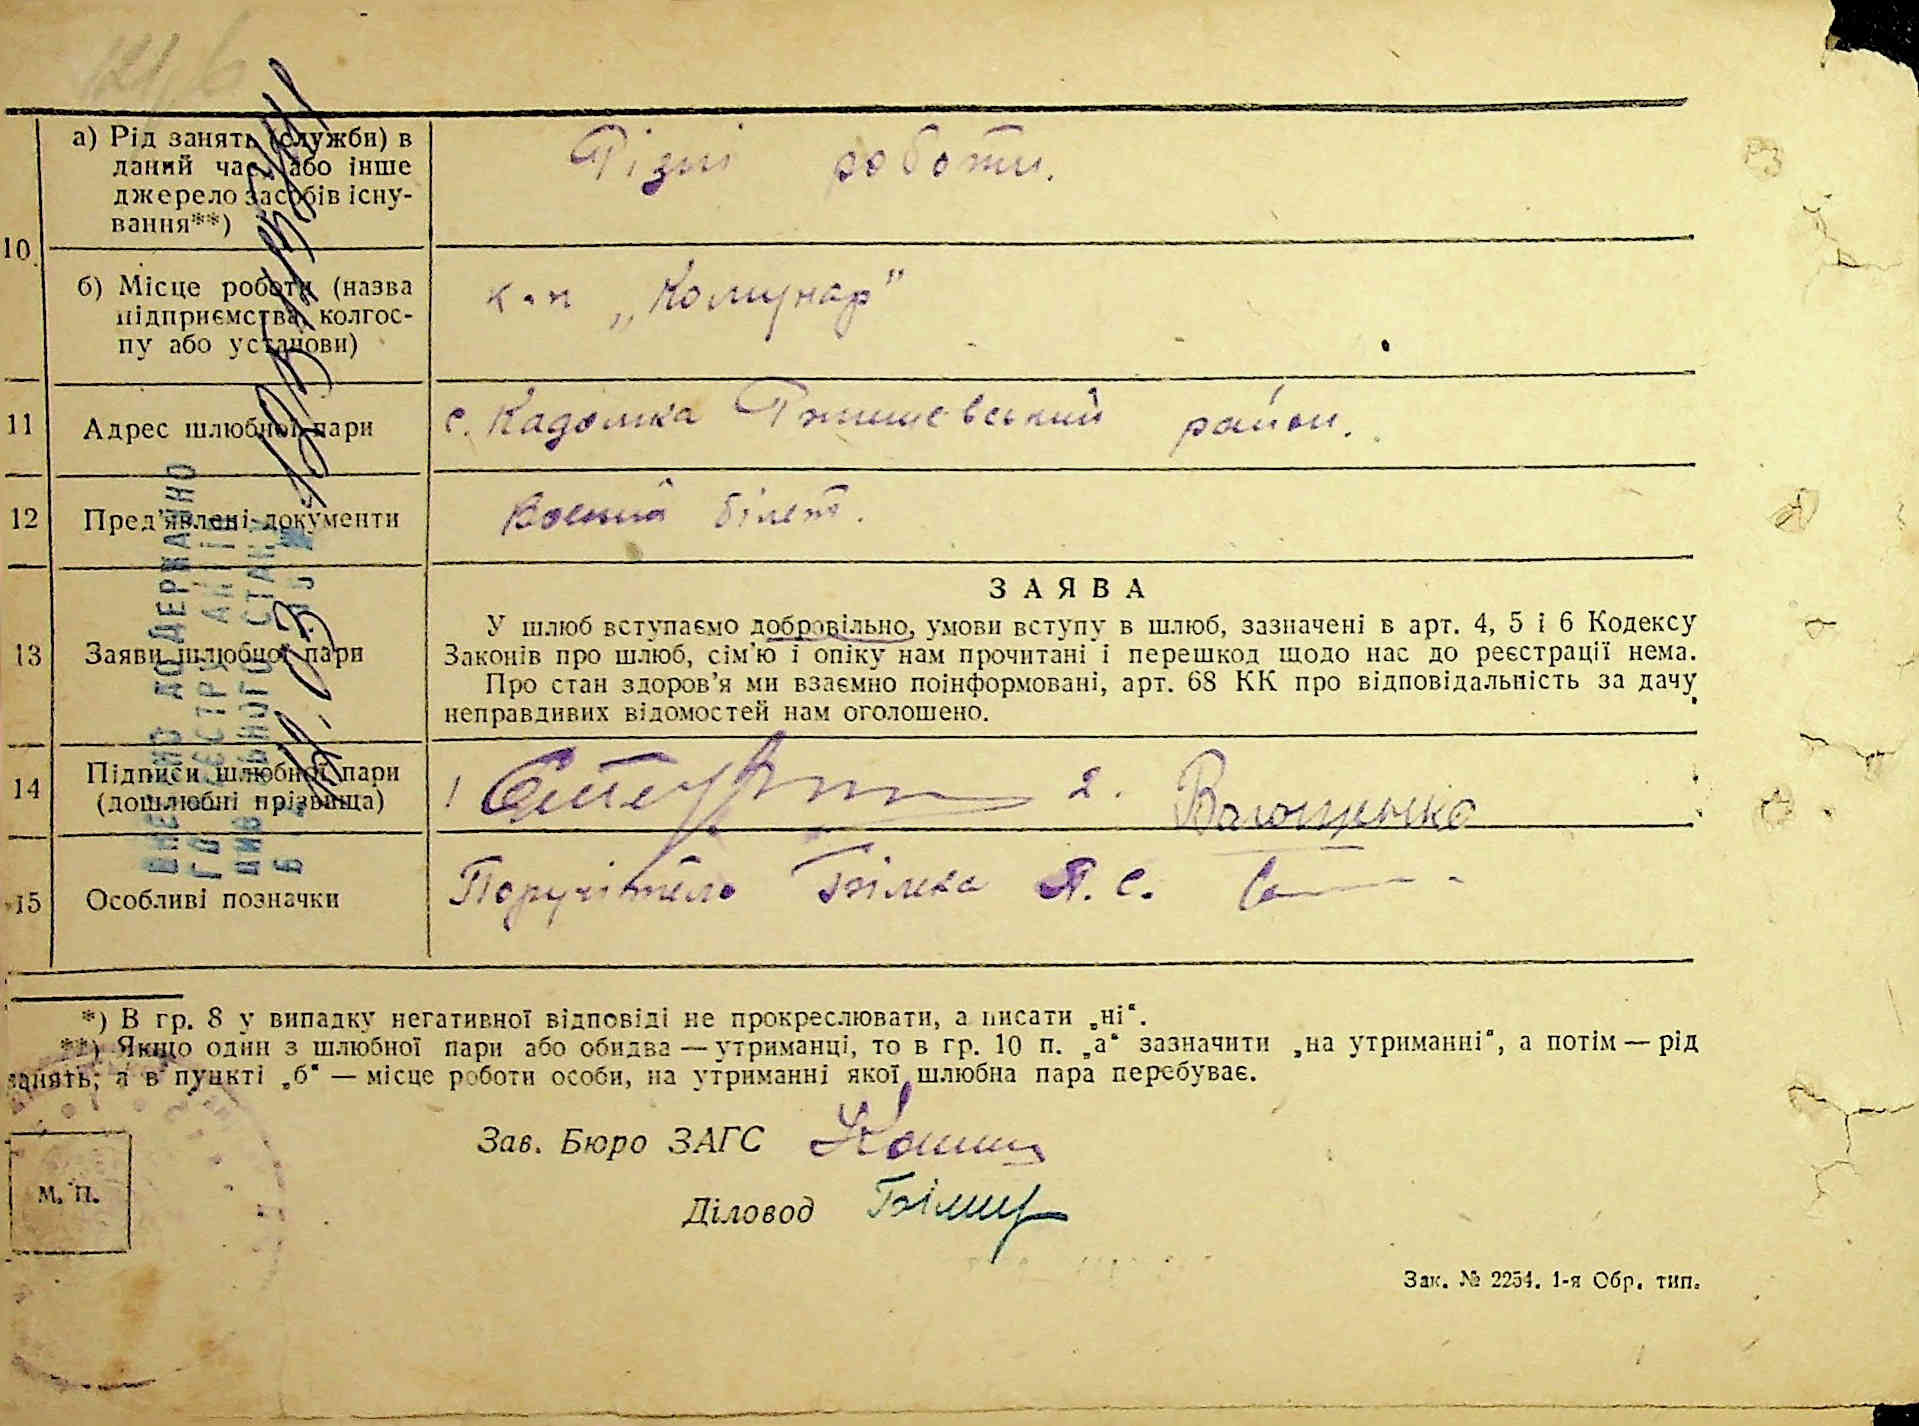 а) Рід занять (служби) в
даний час або інше
джерело засобів існу-
вання**)
Різні роботи.
10
б) Місце роботи (назва
підприємства, колгос-
пу або установи)
к-п „Комунар"
11
Адрес шлюбної пари
с. Кадомка Ржищевський район.
12
Пред'явлені документи
Воений білет.
13
Заяви шлюбної пари
ЗАЯВА
У шлюб вступаємо добровільно, умови вступу в шлюб, зазначені в арт. 4, 5 і 6 Кодексу
Законів про шлюб, сім'ю і опіку нам прочитані і перешкод щодо нас до реєстрації нема.
Про стан здоров'я ми взаємно поінформовані, арт. 68 КК про відповідальність за дачу
неправдивих відомостей нам оголошено.
14
Підписи шлюбної пари
(дошлюбні прізвища)
1
2.
15
Особливі позначки
Поручітель Білека Я. С.
*) В гр. 8 у випадку негативної відповіді не прокреслювати, а писати „ні".
**) Якщо один з шлюбної пари або обидва — утриманці, то в гр. 10 п. „а" зазначити „на утриманні", а потім — рід
занять, а в пункті „б" — місце роботи особи, на утриманні якої шлюбна пара перебуває.
Зав. Бюро ЗАГС
М. П.
Діловод
Зак. № 2254. 1-я Обр. тип.